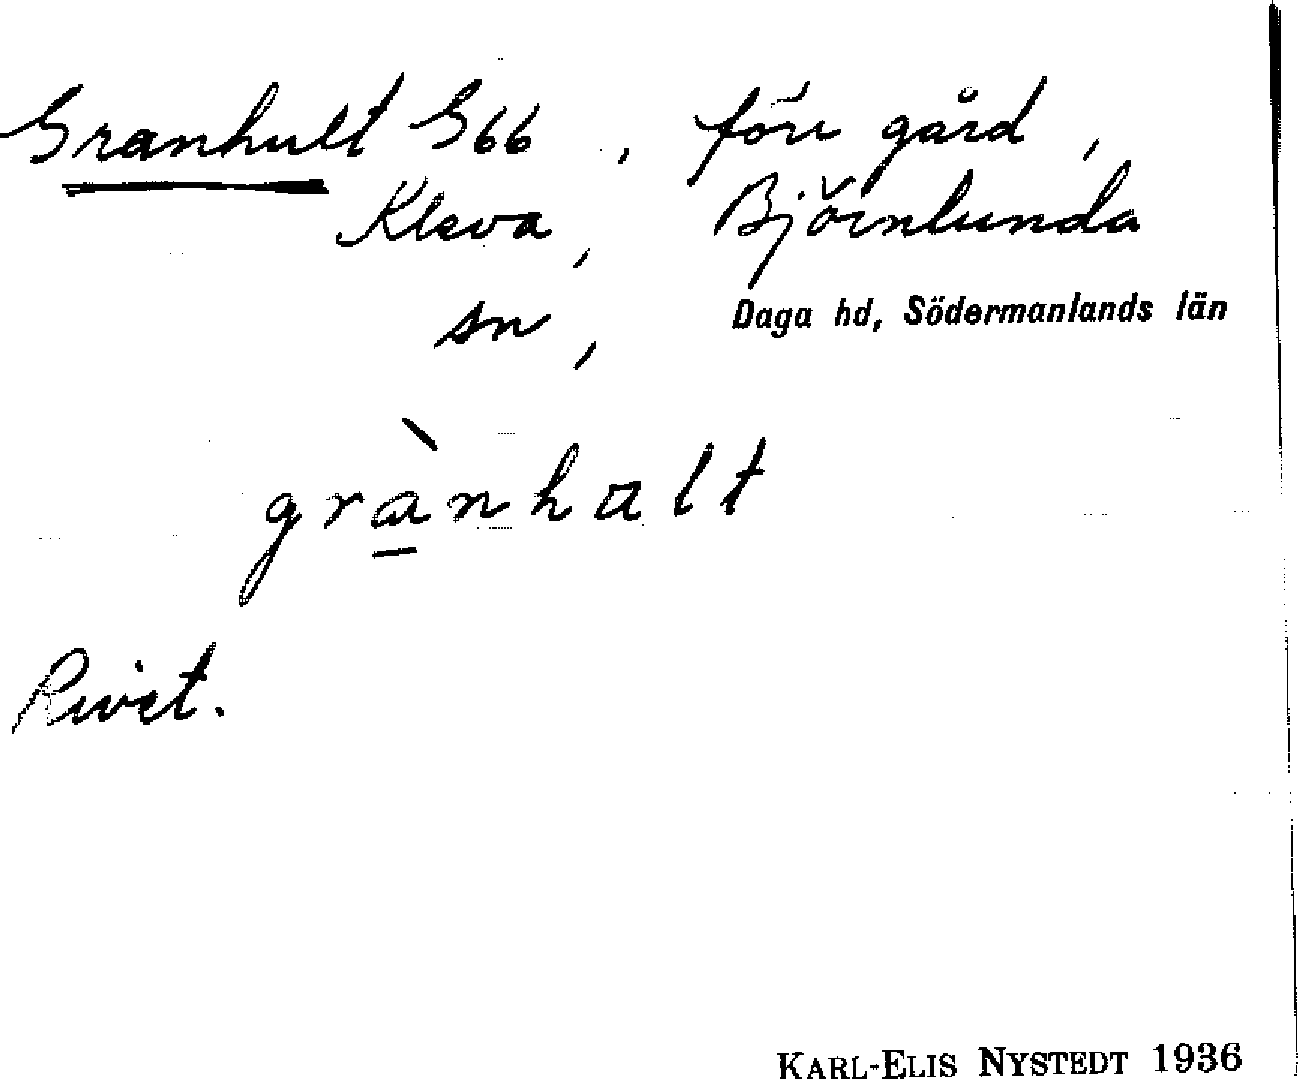 Granhult G66, förr gård,
Kleva, Björnlunda
sn, Daga hd, Södermanlands län
grànhalt
Rivet.
KARL-ELIS NYSTEDT 1936